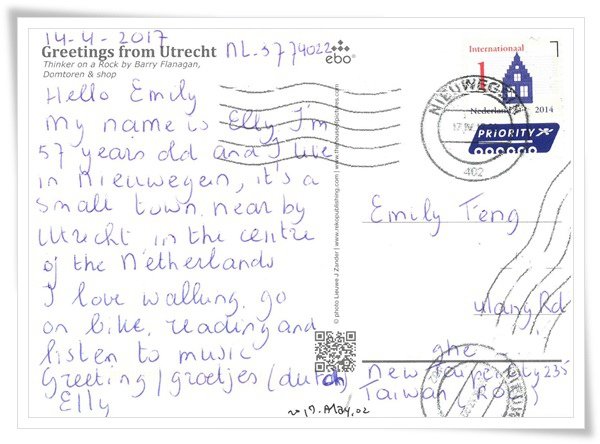 14-4-2017
Greetings from Utrecht NL-3774022
Thinker on a Rock by Barry Flanagan,
Domtoren & shop
ebo
Hello Emily
My name is Elly I'm
57 years old and I live
in Nieuwegein, it's a
small town near by
Utrecht in the centre
of the Netherlands
I love walking, go
on bike, reading and
listen to music
Greeting / groetjes (dutch)
Elly
© photo Lieuwe J Zander | www.nikopublishing.com | www.nikopictures.com
Internationaal
1
Nederland 2014
PRIORITY
NIEUWEGEIN
402
Emily Feng
ulang Rd
ghe
New Taipei City 235
Taiwan (ROC)
2017. May. 02